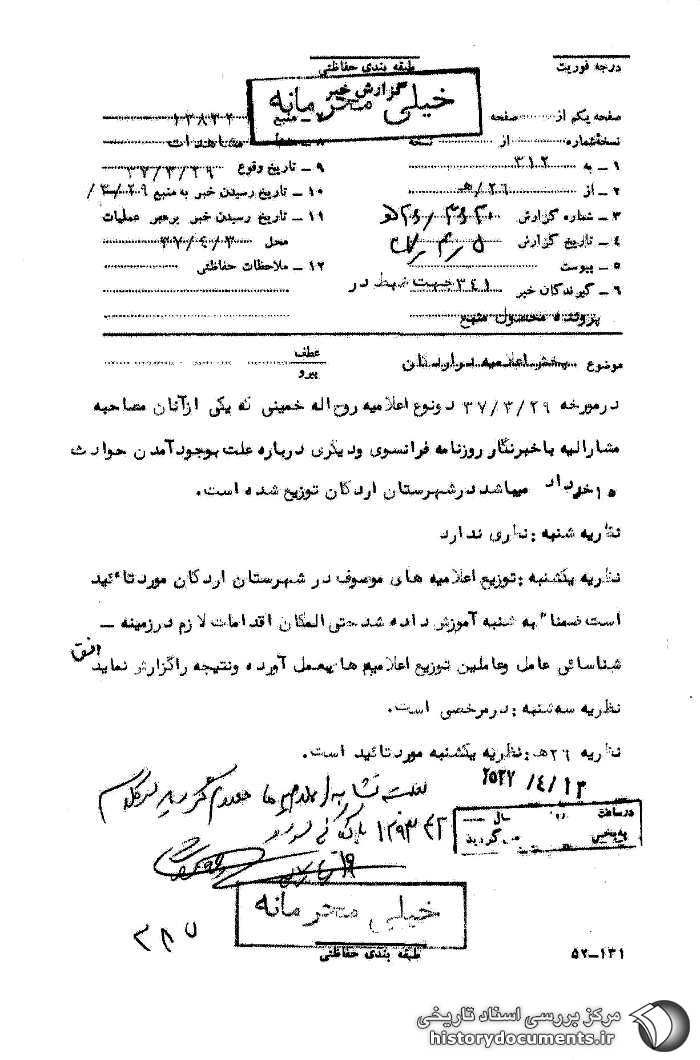 درجه فوریت
طبقه بندی حفاظتی
گزارش خبر
خیلی محرمانه
صفحه یکم از صفحه
نسخه شماره از نسخه
۱ – به ۳۱۲
۲ – از ۲۶/هـ
۳ – شماره گزارش
۴ – تاریخ گزارش
۵ – پیوست
۶ – گیرندگان خبر ۳۴۱ جهت ضبط در
پرونده محصول منبع
۷ – منبع ۱۳۸۳۲
مشاهدات
۹ – تاریخ وقوع ۳۷/۳/۲۹
۱۰ – تاریخ رسیدن خبر به منبع ۳/۲۹/
۱۱ – تاریخ رسیدن خبر برهبر عملیات
محل ۳۷/۴/۳
۱۲ – ملاحظات حفاظتی
موضوع پخش اعلامیه در اردکان
عطف
پیرو
در مورخه ۳۷/۳/۲۹ دونوع اعلامیه روح اله خمینی که یکی از آنان مصاحبه
مشارالیه با خبرنگار روزنامه فرانسوی ودیگری درباره علت بوجود آمدن حوادث
۱۵خرداد میباشد در شهرستان اردکان توزیع شده است.
نظریه شنبه : نظری ندارد
نظریه یکشنبه : توزیع اعلامیه های موصوف در شهرستان اردکان مورد تائید
است ضمنا" به شنبه آموزش داده شد حتی المکان اقدامات لازم در زمینه –
شناسائی عامل وعاملین توزیع اعلامیه ها بعمل آورده ونتیجه راگزارش نماید
افق
نظریه سه شنبه : در مرخصی است.
نظریه ۲۶هـ : نظریه یکشنبه مورد تائید است.
۲۵۳۷/۴/۱۳
در ساعت سال
به بخش گردید
خیلی محرمانه
طبقه بندی حفاظتی
۳۸۵
۵۲–۱۳۱
مرکز بررسی اسناد تاریخی
historydocuments.ir